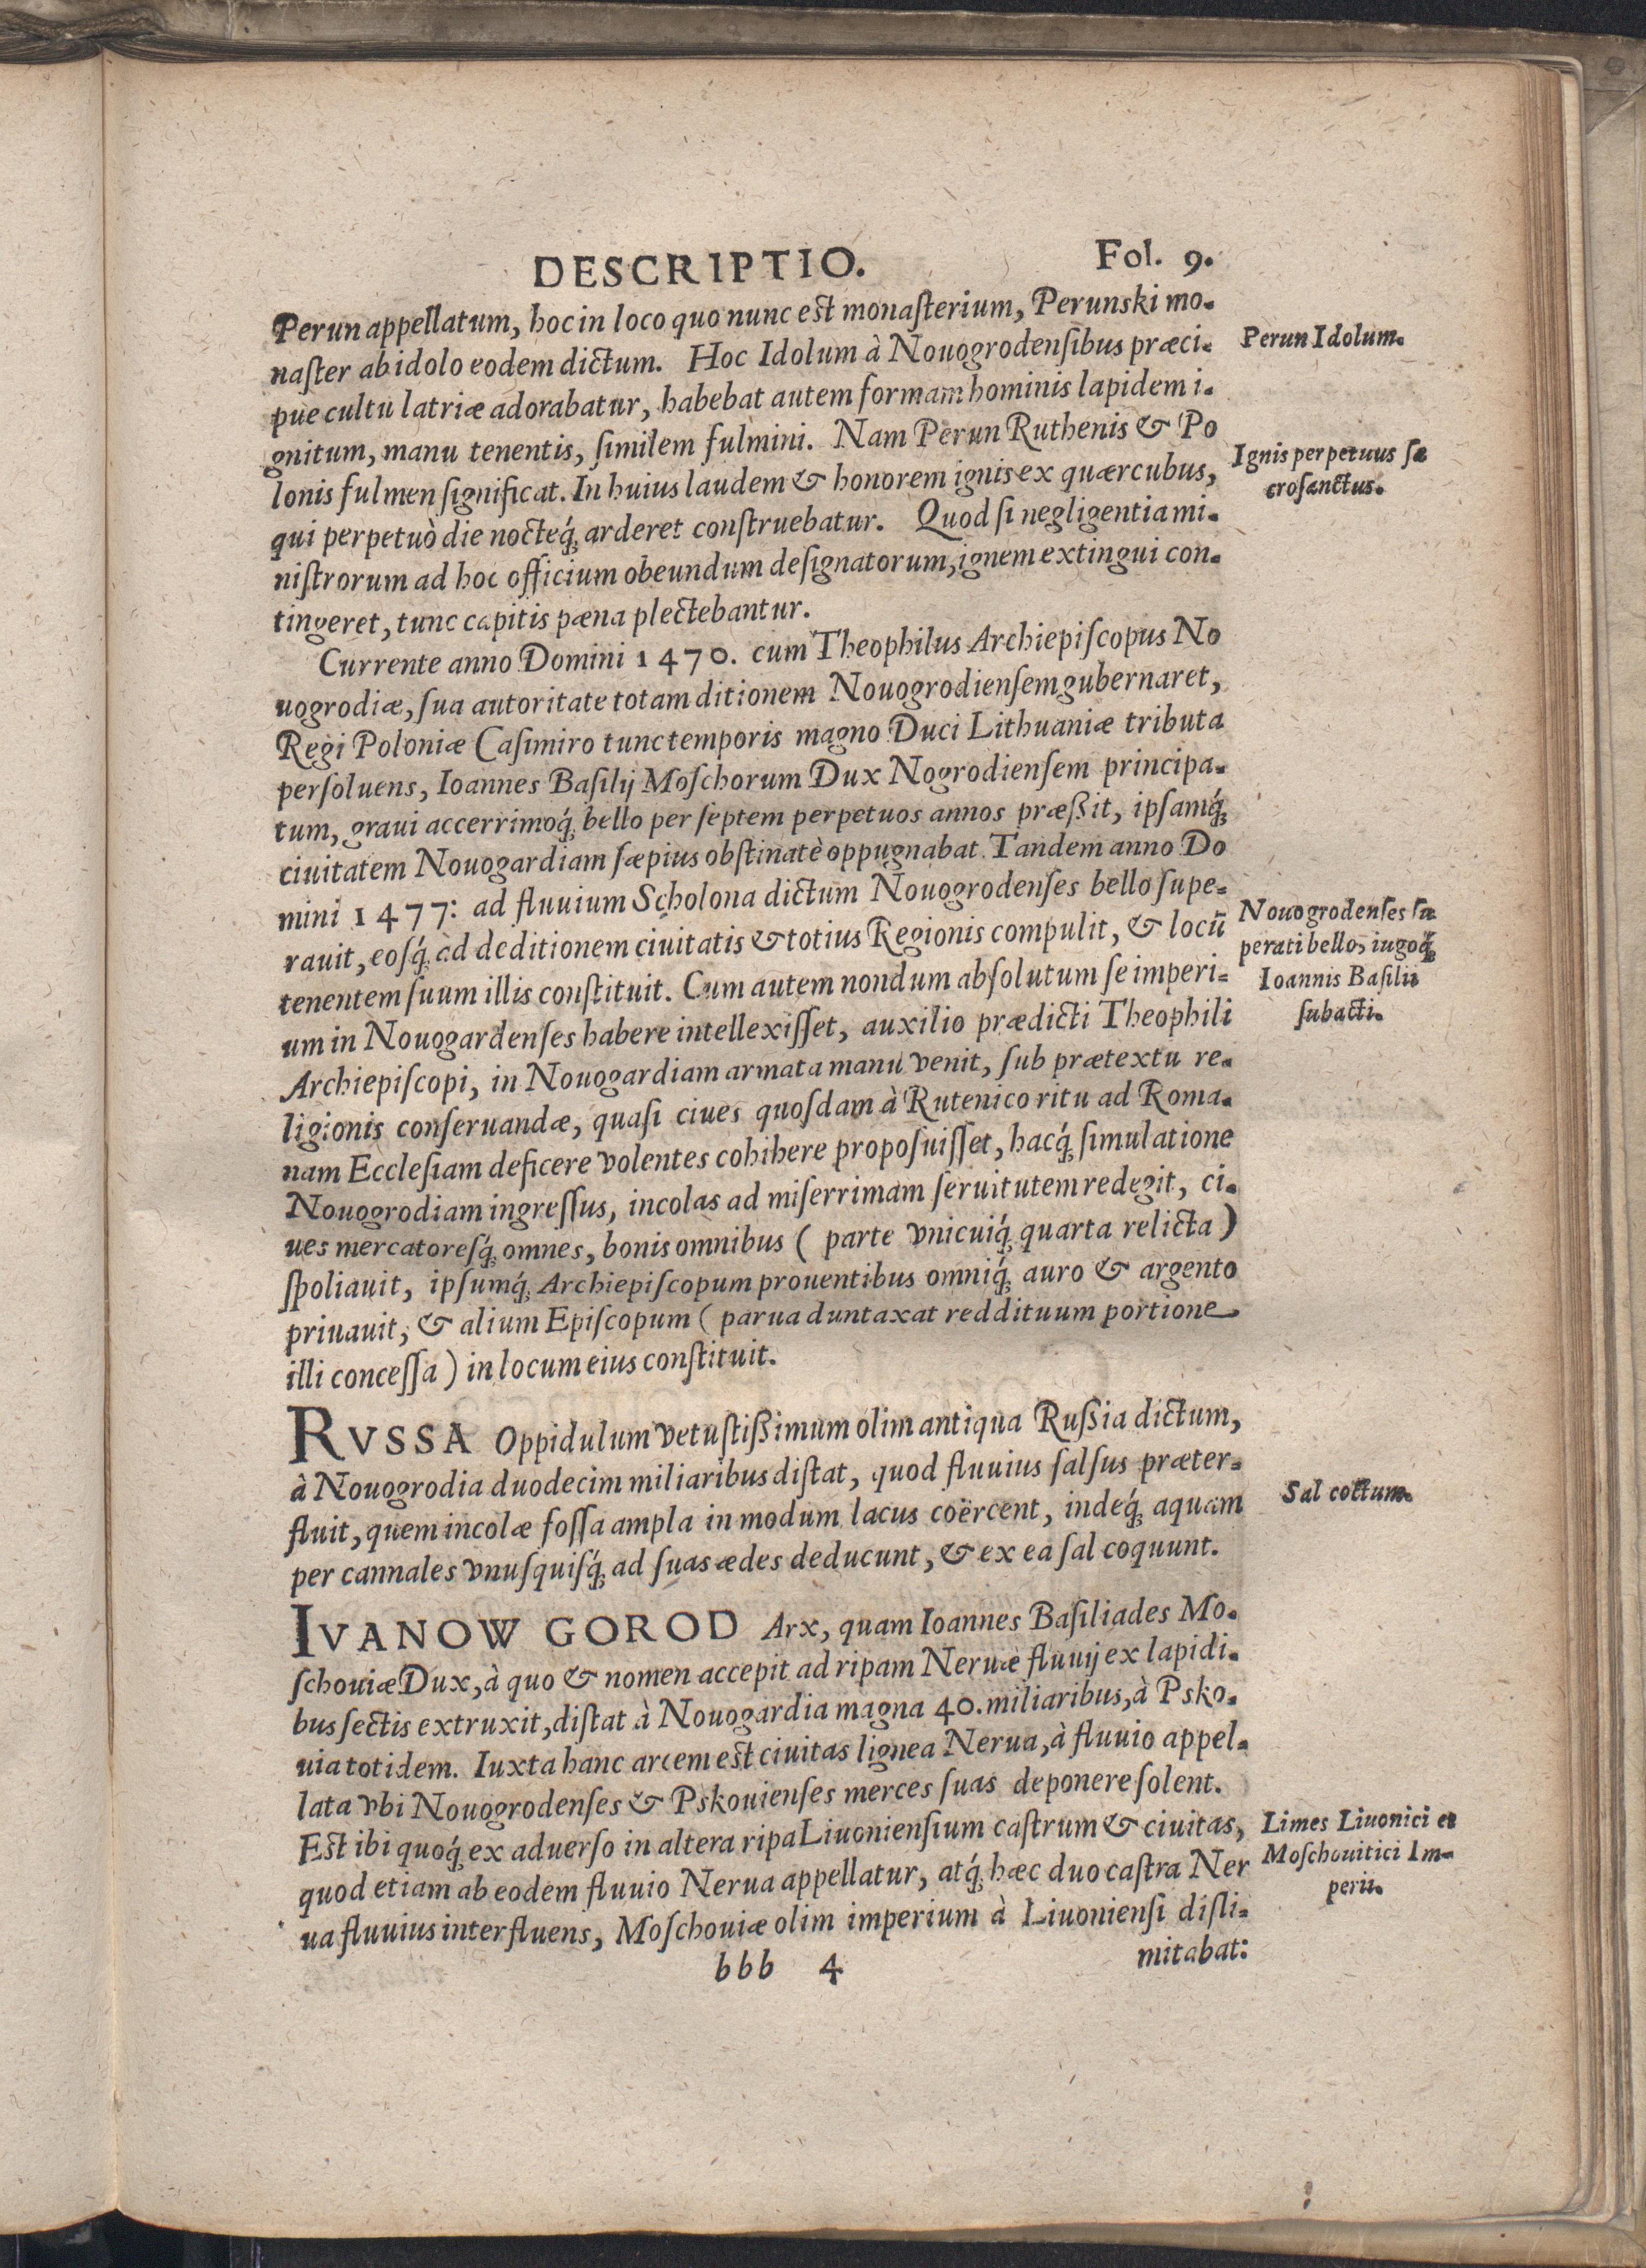 DESCRIPTIO. Fol. 9.
Perun appellatum, hoc in loco quo nunc est monaſterium, Perunski mo-
naſter ab idolo eodem dictum. Hoc Idolum à Nouogrodenſibus præci-
pue cultu latriæ adorabatur, habebat autem formam hominis lapidem i-
gnitum, manu tenentis, ſimilem fulmini. Nam Perun Ruthenis & Po
lonis fulmen ſignificat. In huius laudem & honorem ignis ex quærcubus,
qui perpetuò die nocteq́ꝫ arderet conſtruebatur. Quod ſi negligentia mi-
niſtrorum ad hoc officium obeundum deſignatorum, ignem extingui con-
tingeret, tunc capitis pæna plectebantur.
Perun Idolum.
Ignis perpetuus ſa
croſanctus.
Currente anno Domini 1470. cum Theophilus Archiepiſcopus No
uogrodiæ, ſua autoritate totam ditionem Nouogrodienſem gubernaret,
Regi Poloniæ Caſimiro tunc temporis magno Duci Lithuaniæ tributa
perſoluens, Ioannes Baſilij Moſchorum Dux Nogrodienſem principa-
tum, graui accerrimoq́ꝫ bello per ſeptem perpetuos annos præßit, ipſamq́ꝫ
ciuitatem Nouogardiam ſæpius obſtinatè oppugnabat. Tandem anno Do
mini 1477: ad fluuium Scholona dictum Nouogrodenſes bello ſupe-
rauit, eoſq́ꝫ ad deditionem ciuitatis & totius Regionis compulit, & locū
tenentem ſuum illis conſtituit. Cum autem nondum abſolutum ſe imperi-
um in Nouogardenſes habere intellexiſſet, auxilio prædicti Theophili
Archiepiſcopi, in Nouogardiam armata manu venit, ſub prætextu re-
ligionis conſeruandæ, quaſi ciues quoſdam à Rutenico ritu ad Roma-
nam Eccleſiam deficere volentes cohibere propoſuiſſet, hacq́ꝫ ſimulatione
Nouogrodiam ingreſſus, incolas ad miſerrimam ſeruitutem redegit, ci-
ues mercatoreſq́ꝫ omnes, bonis omnibus ( parte vnicuiq́ꝫ quarta relicta )
ſpoliauit, ipſumq́ꝫ Archiepiſcopum prouentibus omniq́ꝫ auro & argento
priuauit, & alium Epiſcopum ( parua duntaxat reddituum portione
illi conceſſa ) in locum eius conſtituit.
Nouogrodenſes ſu
perati bello, iugoq́ꝫ
Ioannis Baſilii
ſubacti.
RVSSA Oppidulum vetuſtißimum olim antiqua Rußia dictum,
à Nouogrodia duodecim miliaribus diſtat, quod fluuius ſalſus præter-
fluit, quem incolæ foſſa ampla in modum lacus coërcent, indeq́ꝫ aquam
per cannales vnuſquiſq́ꝫ ad ſuas ædes deducunt, & ex ea ſal coquunt.
Sal coctum.
IVANOW GOROD Arx, quam Ioannes Baſiliades Mo-
ſchouiæ Dux, à quo & nomen accepit ad ripam Neruæ fluuij ex lapidi-
bus ſectis extruxit, diſtat à Nouogardia magna 40. miliaribus, à Psko-
uia totidem. Iuxta hanc arcem est ciuitas lignea Nerua, à fluuio appel-
lata vbi Nouogrodenſes & Pskouienſes merces ſuas deponere ſolent.
Est ibi quoq́ꝫ ex aduerſo in altera ripa Liuonienſium caſtrum & ciuitas,
quod etiam ab eodem fluuio Nerua appellatur, atq́ꝫ hæc duo caſtra Ner
ua fluuius interfluens, Moſchouiæ olim imperium à Liuonienſi diſli-
mitabat:
Limes Liuonici et
Moſchouitici Im-
perii.
bbb 4